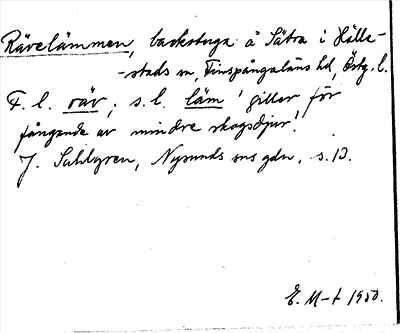 Rävelämmen, backstuga å Sätra i Hälle-
-stads sn, Finspångaläns hd, Östg. l.
F. l. räv; s. l. läm 'giller för
fångande av mindre skogsdjur'.
J. Sahlgren, Nysunds sns gdn, s. 13.
E. M-t 1950.